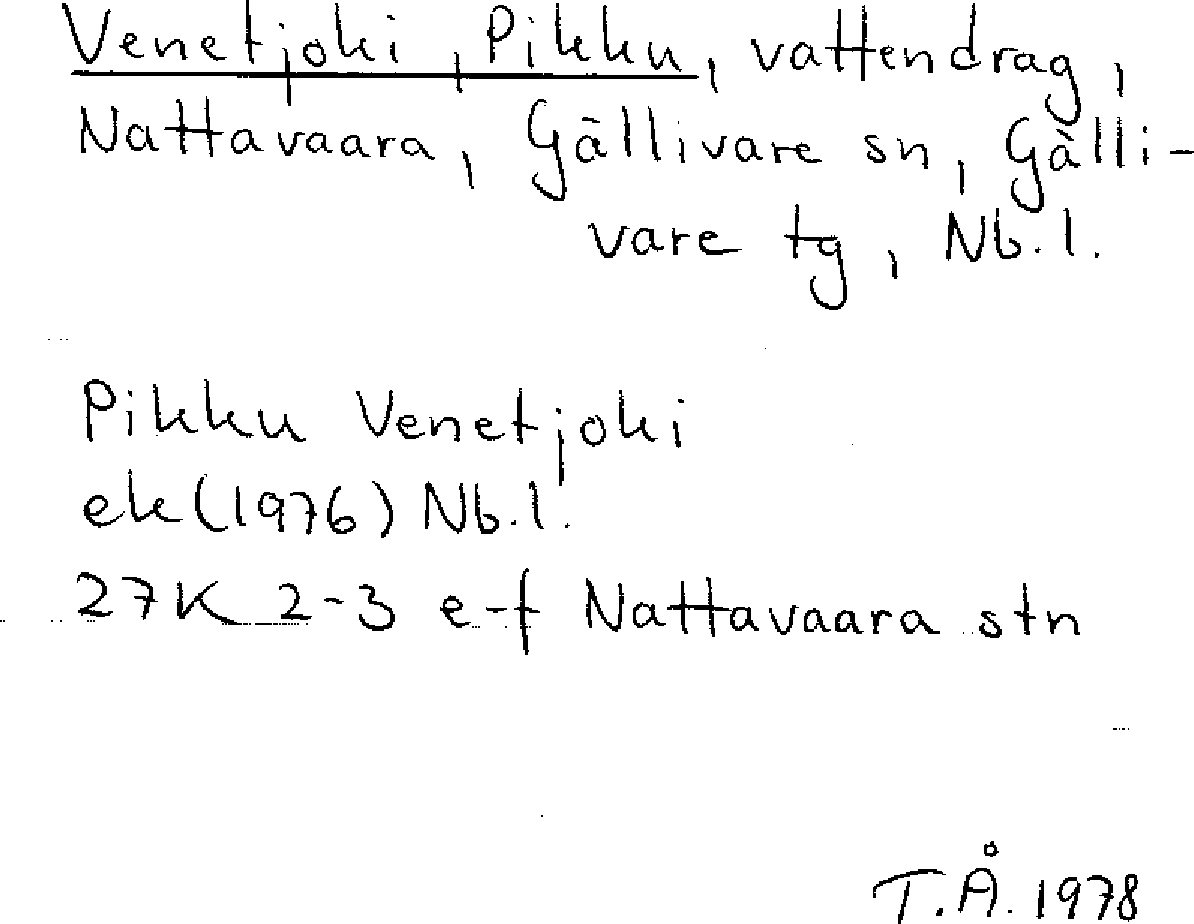 Venetjoki, Pikku, vattendrag,
Nattavaara, Gällivare sn, Gälli-
vare tg, Nb.l.
Pikku Venetjoki
ek (1976) Nb.l.
27K 2-3 e-f Nattavaara stn
T.Å. 1978